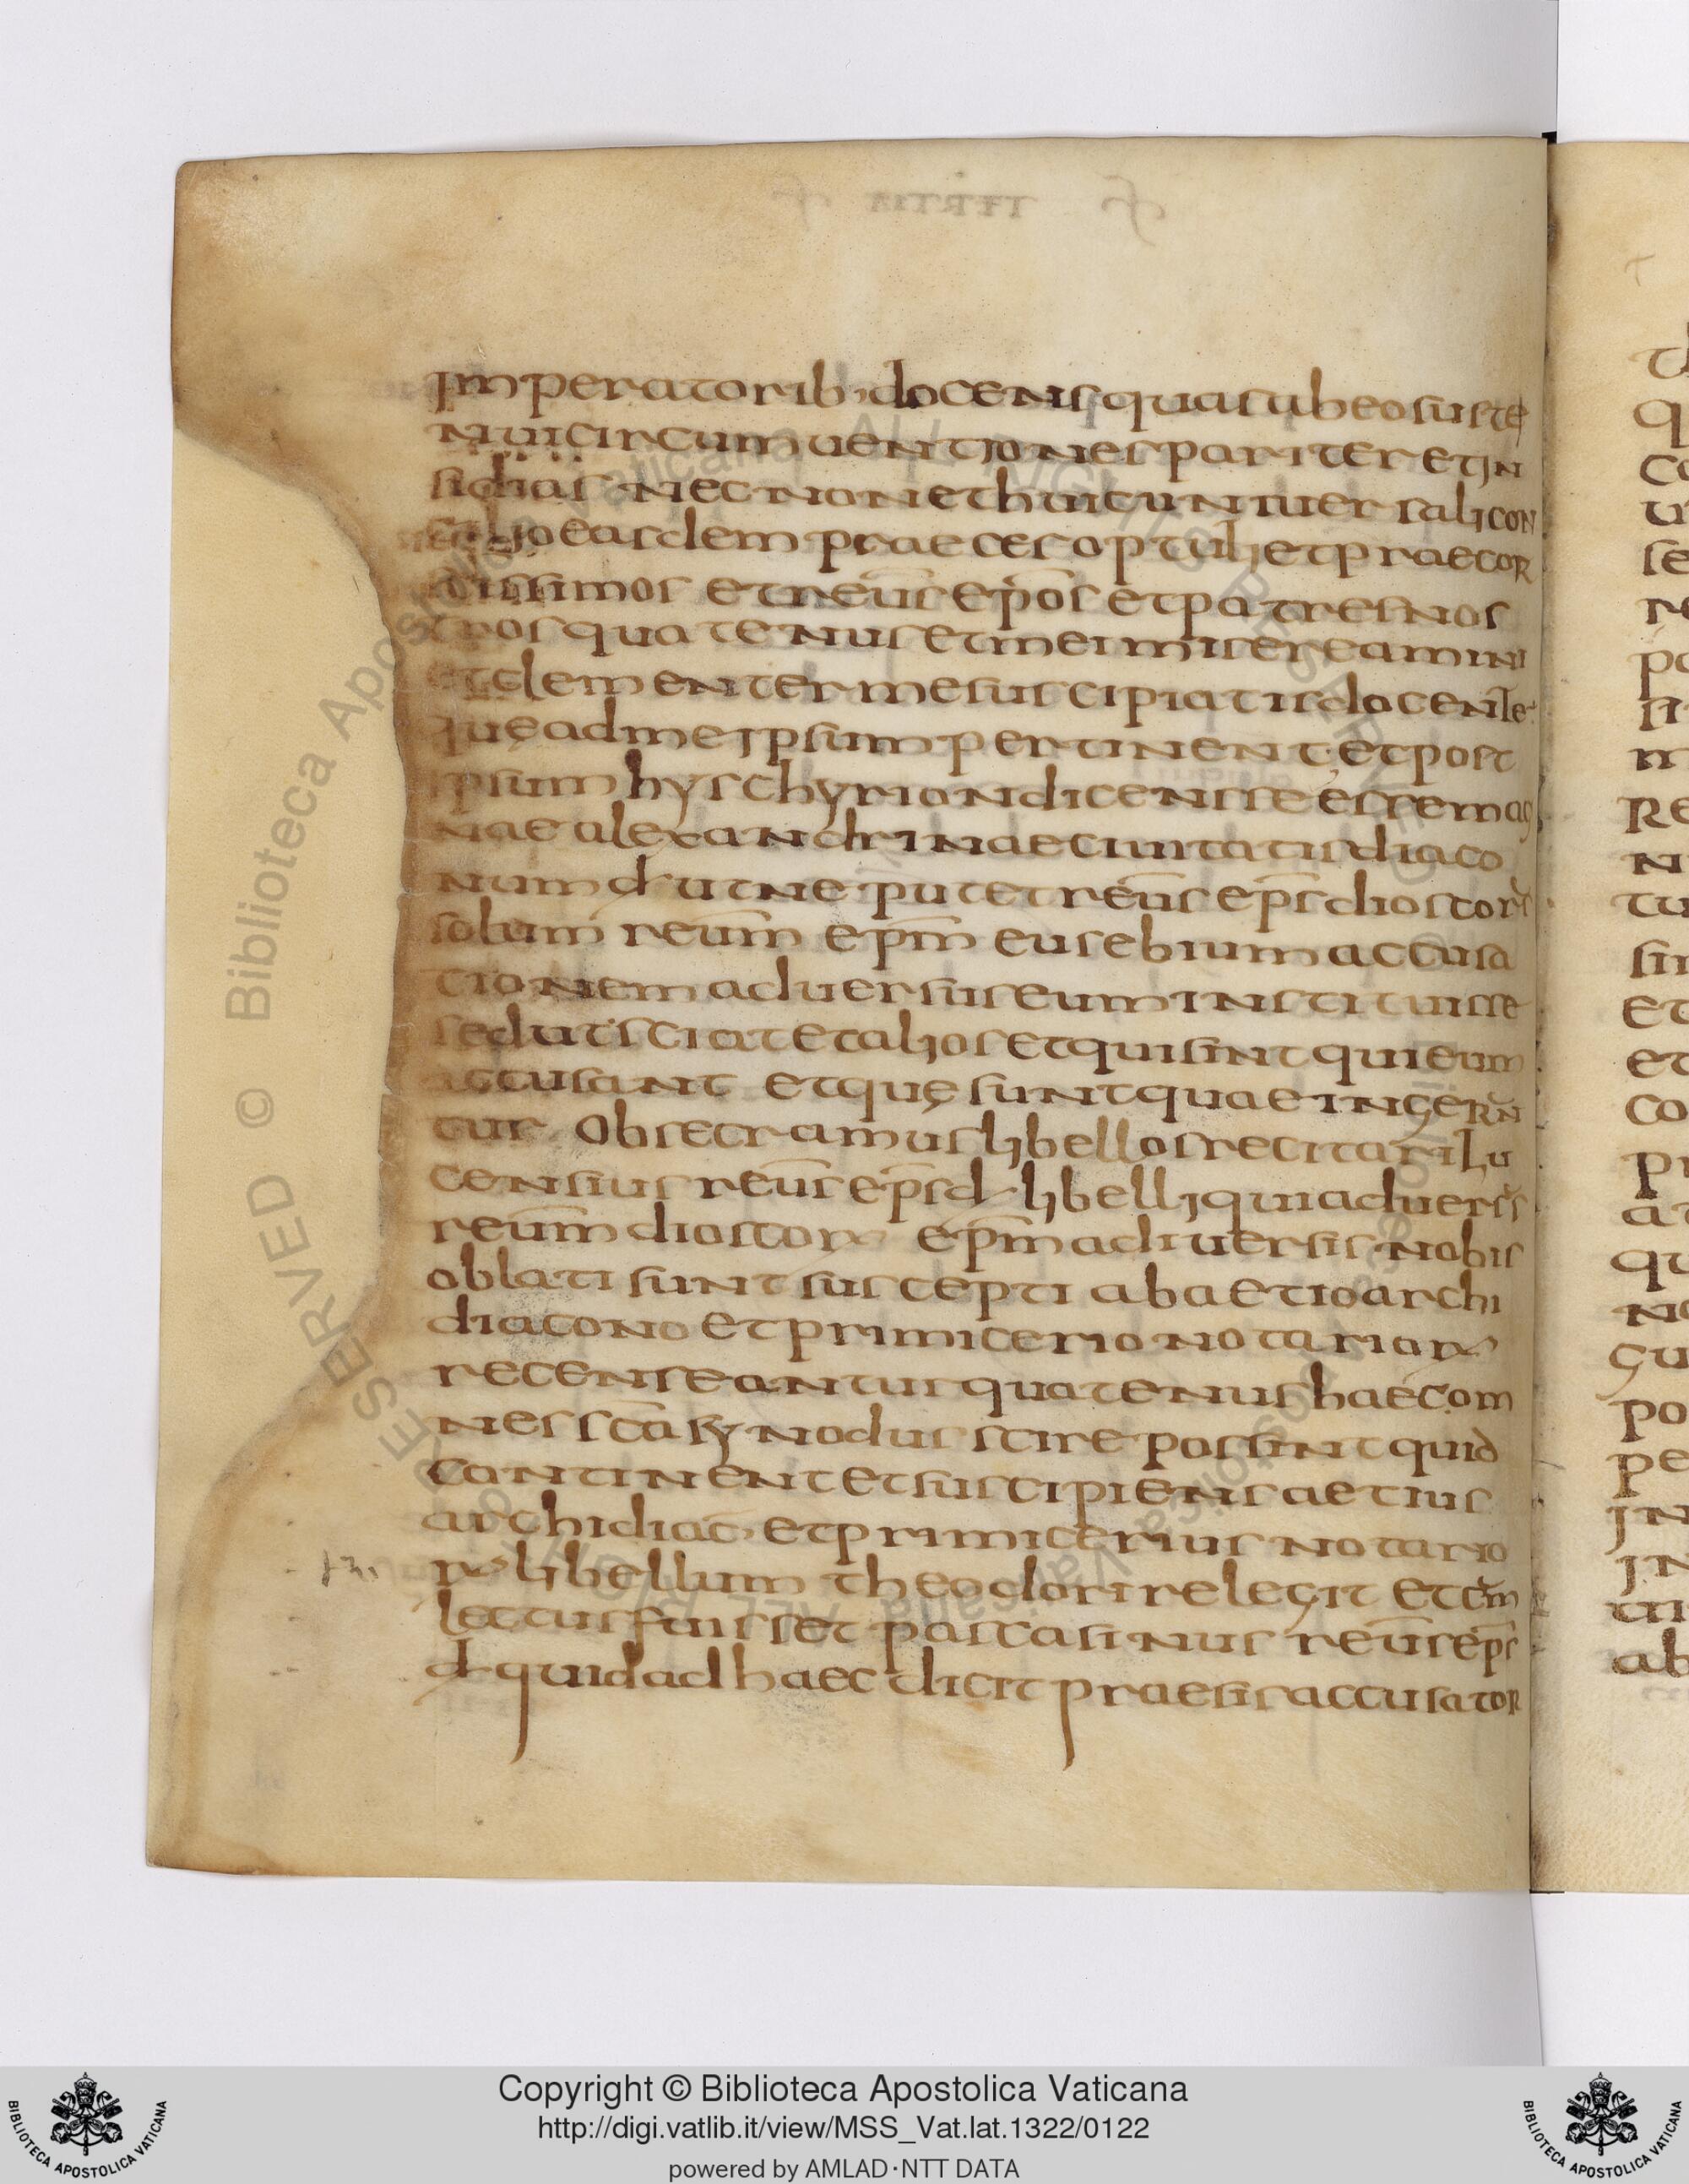 Imperatorib; docens quas ub eo suste
nui circumuentiones pariter et in
sidias nec non et huic uniuersali con
cilio easdem praeces optuli et praecor
tissimos et reu̅s ep̅os et patres nos
tros quatenus et mei misereamini
et clementer me suscipiatis docente
quę ad me ipsum pertinent et post
ipsum hyschyrion dicens se esse mag
nae alexandrinae ciuitatis diaco
num đ ut ne putet reu̅s ep̅s dioscors
solum reu̅m ep̅m eusebium accusa
tionem aduersus eum instituisse
sed ut sciat et alios et qui sint qui eum
accusant et quę sunt quae ingerun
tur Obsecramus libellos recitari Lu
censius reu̅s ep̅s đ libelli qui aduers
reu̅m dioscorum ep̅m aduersis nobis
oblati sunt suscepti ab aetio archi
diacono et primicerio notariorum
recenseantur quatenus haec om
nes s̅ca synodus scire possint quid
continent et suscipiens aetius
archidiac; et primicerius notario
rum libellum theodori relegit et cum
lectus fuisset pascasinus reu̅s ep̅s
đ quid ad haec dicit praesis accusator
TERTIA
Copyright © Biblioteca Apostolica Vaticana
http://digi.vatlib.it/view/MSS_Vat.lat.1322/0122
powered by AMLAD·NTT DATA
BIBLIOTECA APOSTOLICA VATICANA
BIBLIOTECA APOSTOLICA VATICANA